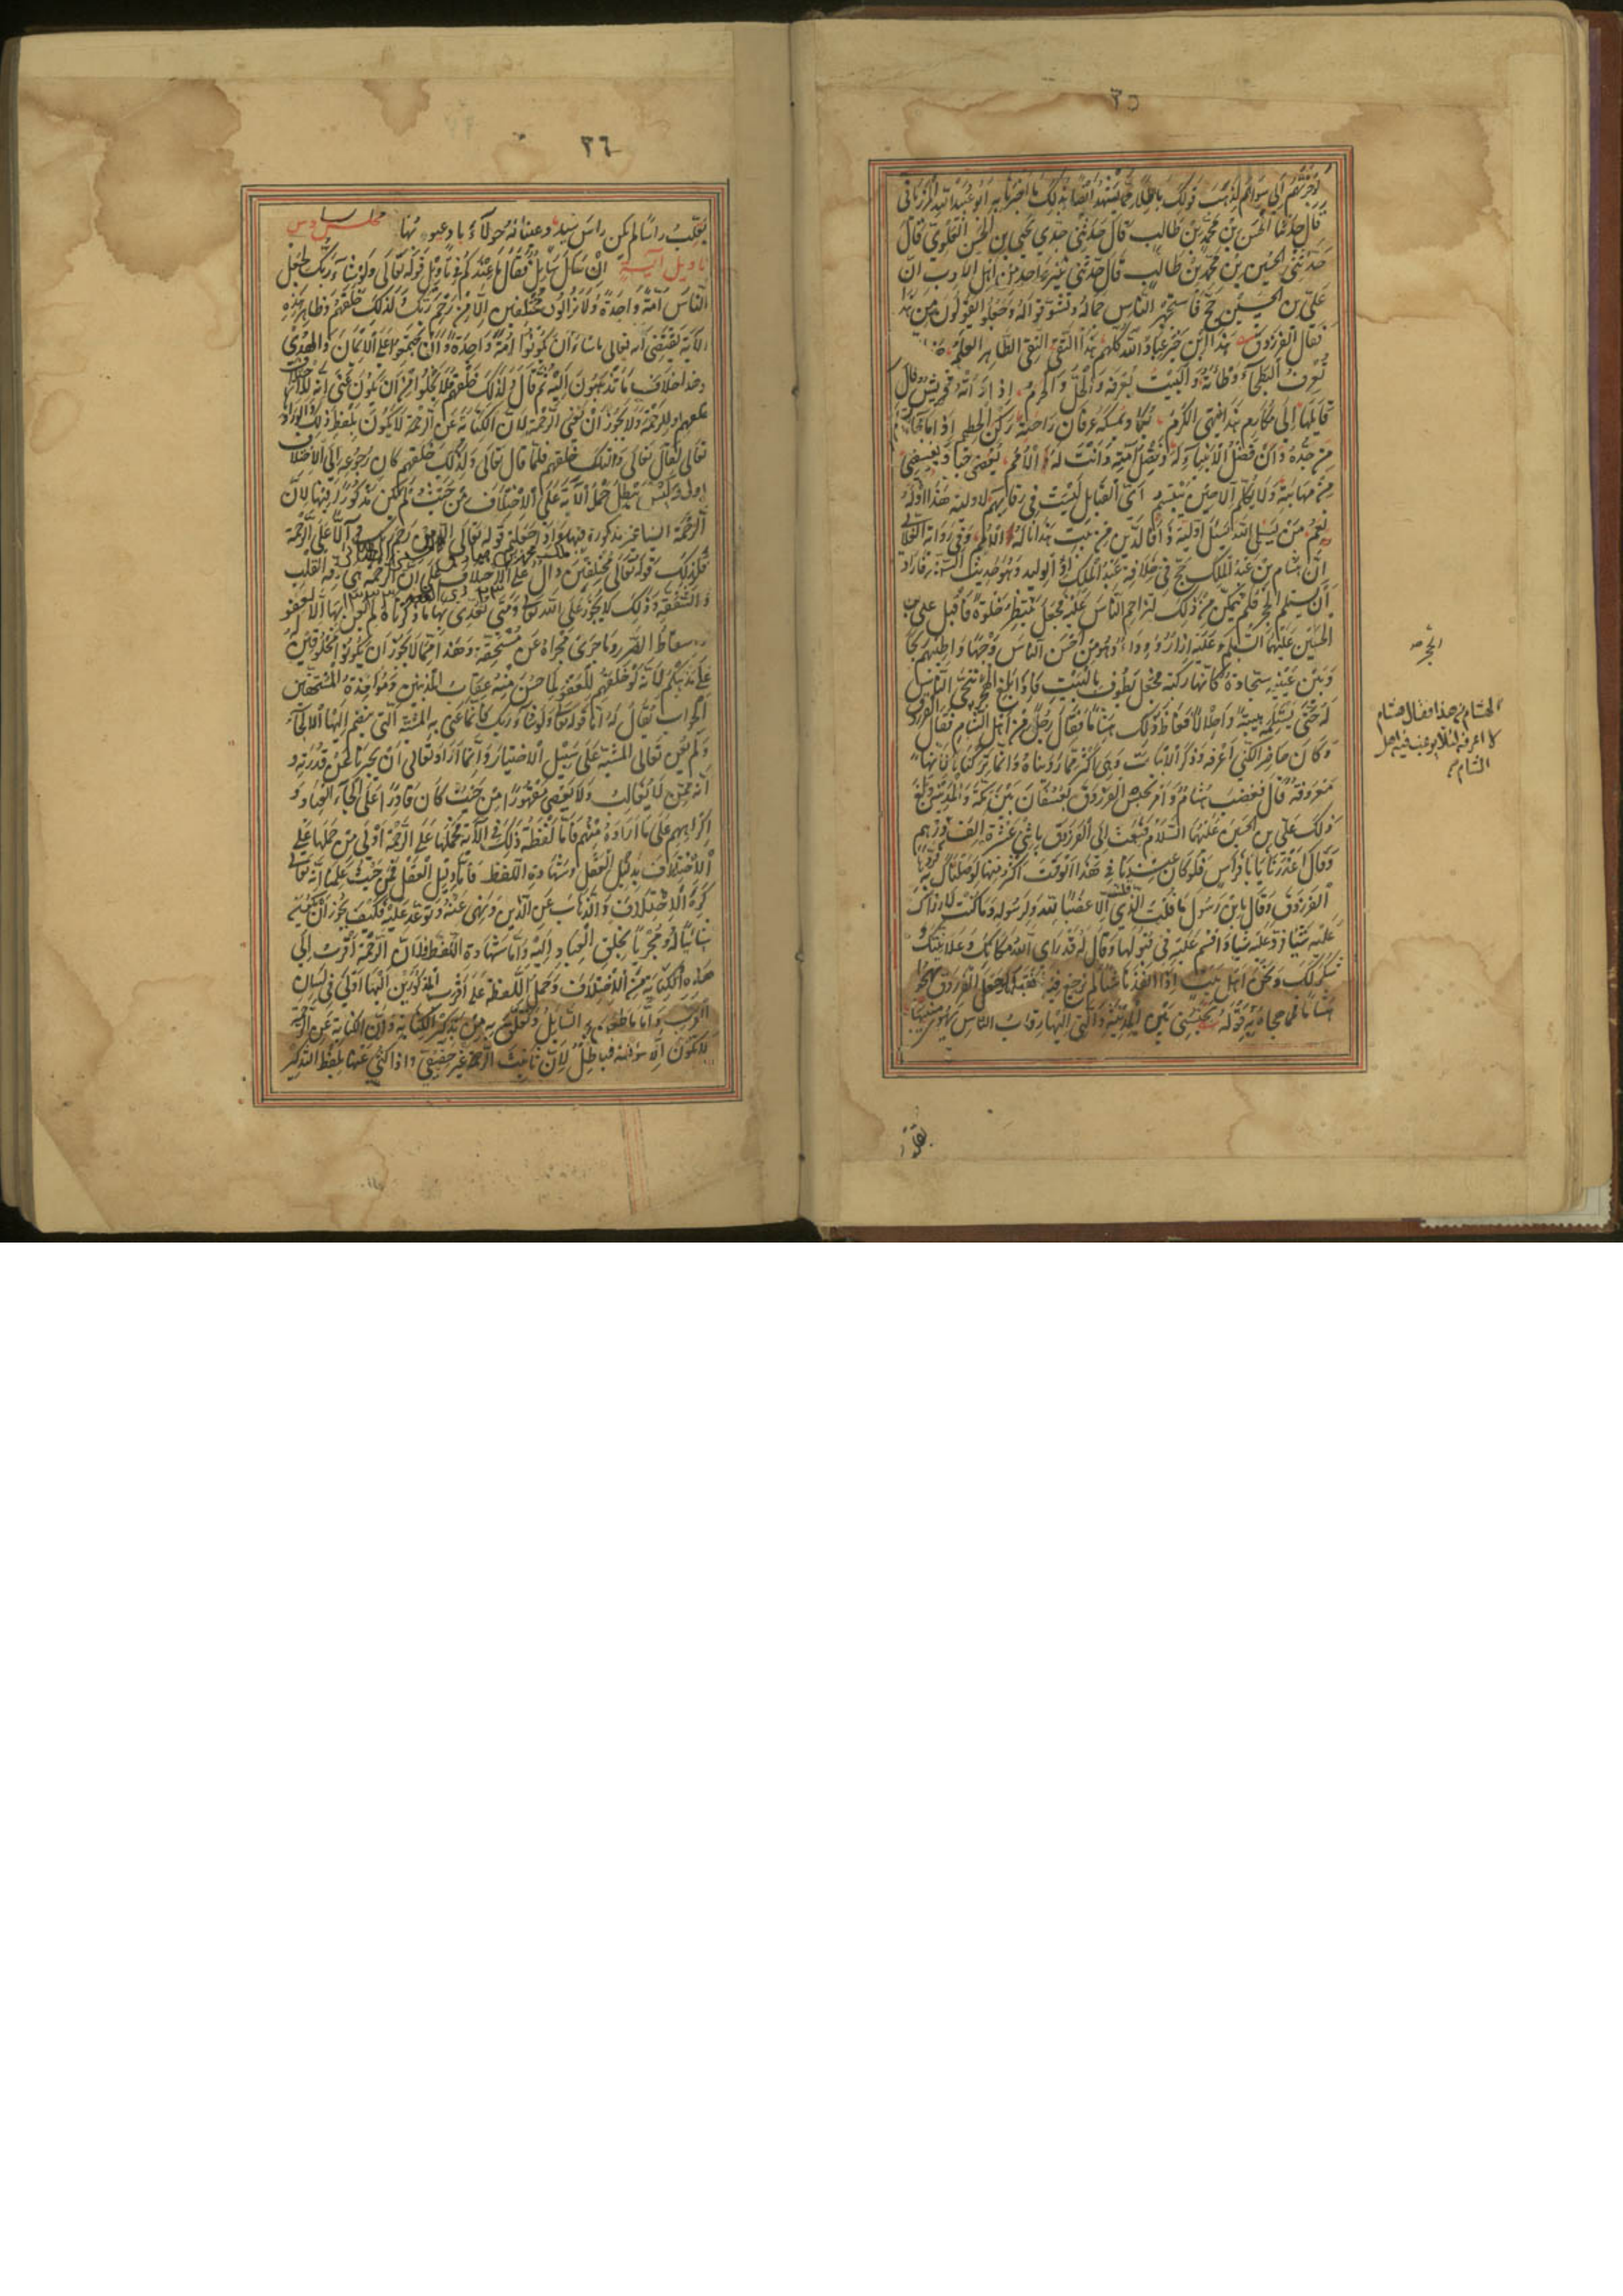 ٣٥
قال حدثنا الحسن بن محمد بن طالب قال حدثني جدي يحيى بن الحسن العلوي قال
حدثني الحسين بن محمد بن طالب قال حدثني غير واحد من اهل الادب ان
علي بن الحسين حج فاستجهر الناس جماله وتشوفوا له وجعلوا يقولون من هذا
فقال الفرزدق هذا ابن خير عباد الله كلهم هذا التقي النقي الطاهر العلم
تعرف البطحاء وطأته والبيت يعرفه والحل والحرم اذا رأته قريش قال
قائلها الى مكارم هذا ينتهي الكرم يكاد يمسكه عرفان راحته ركن الحطيم اذا ما جاء
من جده دان فضل الانبياء له وفضل امته دانت له الامم يغضي حياء ويغضى
من مهابته ولا يكلم الا حين يبتسم اي القبايل ليست في رقابهم لاولية هذا اوله
نعم من يشكر الله يشكر اولية ذا فالدين من بيت هذا ناله الامم وفي رواية الغلابي
ان هشام بن عبد الملك حج في خلافة عبد الملك او الوليد وهو حديث السن فاراد
ان يستلم الحجر فلم يتمكن من ذلك لتزاحم الناس عليه فجعل ينتظر خلوة فاقبل علي بن
الحسين عليهما السلم وعليه ازار ورداء وهو من احسن الناس وجها واطيبهم ريحا
وبين عينيه سجادة كانها ركبة فجعل يطوف بالبيت فاذا بلغ الحجر تنحى الناس
له حتى يستلمه هيبة واجلالا فغاظ ذلك هشاما فقال رجل من اهل الشام فقال الفرزدق
وكان حاضرا لكني اعرفه وذكر الابيات وهي اكثر مما رويناه وانما تركناها لانها
معروفة قال فغضب هشام وامر بحبس الفرزدق بعسفان بين مكة والمدينة وبلغ
ذلك علي بن الحسين عليهما السلام فبعث الى الفرزدق باثني عشرة الف درهم
وقال اعذرنا يا با فراس فلو كان عندنا في هذا الوقت اكثر منها لوصلناك به
الفرزدق وقال يا بن رسول ما قلت الذي قلت الا غضبا لله ولرسوله وما كنت لارزاك
عليه شيئا وردها عليه واقسم عليه في قبولها وقال له قد راى الله مكانك وعلانيتك
شكر لك ونحن اهل بيت اذا انفذنا شيئا لم نرجع فيه فقبلها وجعل الفرزدق يهجو
هشاما فمما هجاه به قوله تحبسني بين المدينة والتي اليها رقاب الناس يهوي منيبها
الحجر صح
لهشام من هذا فقال هشام
لا اعرفه لئلا يرغب فيه اهل
الشام صح
يقلب
٣٦
يقلب راسا لم يكن راس سيد وعينا له حولاء باد عيوبها
تاويل آية ان سال سايل فقال ما عندكم في تاويل قوله تعالى ولو شاء ربك لجعل
الناس امة واحدة ولا يزالون مختلفين الا من رحم ربك ولذلك خلقهم وظاهر هذه
الاية يقتضي انه تعالى ما شاء ان يكونوا امة واحدة وان يجتمعوا على الايمان والهدى
وهذا خلاف ما تذهبون اليه ثم قال ولذلك خلقهم فلا يخلوا من ان يكون عنى انه للاختلاف
خلقهم او للرحمة ولا يجوز ان يعني الرحمة لان الكناية عن الرحمة لا يكون بلفظ ذلك ولو اراد
تعالى لقال تعالى ولتلك خلقهم فلما قال تعالى ولذلك خلقهم كان رجوعه الى الاختلاف
اولى وليس يبطل حمل الآية على الاختلاف من حيث لم يكن مذكورا فيها لان
الرحمة ايضا غير مذكورة فيها
فكذلك قوله تعالى مختلفين دال على الاختلاف على ان الرحمة هي رقة القلب
والشفقة وذلك لا يجوز على الله تعالى ومتى تعدى بها ما ذكرناه لم يعن بها الا العفو
واسقاط الضرر وما جرى مجراه عن مستحقه وهذا مما لا يجوز ان يكونوا مخلوقين
على مذهبكم لانه لو خلقهم للعفو لما حسن منه عقاب المذنبين ومؤاخذة المستحقين
الجواب يقال له اما قوله تعالى ولو شاء ربك فانما عنى به المشية التي ينضم اليها الالجاء
ولم يعن تعالى المشية على سبيل الاختيار وانما اراد تعالى ان يخبرنا عن قدرته و
انه ممن لا يغالب ولا يعصى مقهورا من حيث كان قادرا على الجاء العباد و
اكراههم على ما اراده منهم فاما لفظة ذلك في الآية فحملها على الرحمة اولى من حملها على
الاختلاف بدليل العقل وشهادة اللفظ فاما دليل العقل فمن حيث علمنا انه تعالى
كره الاختلاف والذهاب عن الدين ونهى عنه وتوعد عليه فكيف يجوز ان يكون
شائيا له ومجريا بخلق العباد اليه واما شهادة اللفظ فلان الرحمة اقرب الى
هذه الكناية من الاختلاف وحمل اللفظ على اقرب المذكورين اليها اولى في لسان
العرب واما ما طعن به السايل وتعلق به من تذكير الكناية وان الكناية عن الرحمة
لا تكون الا مؤنثة فباطل لان تانيث الرحمة غير حقيقي واذا كني عنها بلفظ التذكير